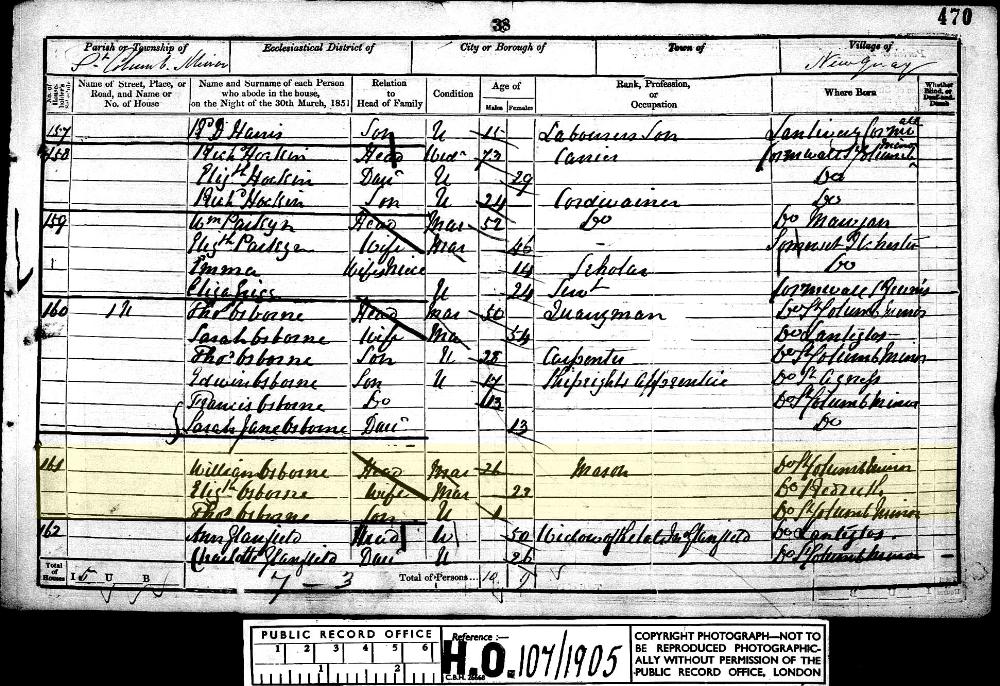 38
470
Parish or Township of
St Columb Minor
Ecclesiastical District of
City or Borough of
Town of
Village of
New Quay
Name of Street, Place, or Road, and Name or No. of House
Name and Surname of each Person who abode in the house, on the Night of the 30th March, 1851
Relation to Head of Family
Condition
Age of
Males Females
Rank, Profession, or Occupation
Where Born
Whether Blind, or Deaf-and-Dumb
157 Harris Son U 15 Labourers Son
158 Richd Hoskin Head Widr 73 Carrier Cornwall St Columb Minor
Elizth Hoskin Daur U 29 Do
Richd Hoskin Son U 24 Cordwainer Do
159 Wm Parkyn Head Mar 52 Do Do Mawgan
Elizth Wife Mar 46 - Somerset Ilchester
Emma Wifes Niece 14 Scholar Do
Eliza U 24 Servt Cornwall
160 Thos Osborne Head Mar 50 Quarryman Do St Columb Minor
Sarah Osborne Wife Mar 54 Do Lantiglos
Thos Osborne Son U 28 Carpenter Do St Columb Minor
Edwin Osborne Son U 17 Shiprights Apprentice Do St Agness
Francis Osborne Do 13 Do St Columb Minor
Sarah Jane Osborne Daur 13 Do
161 William Osborne Head Mar 26 Mason Do St Columb Minor
Elizth Osborne Wife Mar 22 Do Redruth
Thos Osborne Son U 1 Do St Columb Minor
162 Ann Glanfield Head W 50 Widow of the late Glanfield Do Lantiglos
Charlotte Glanfield Daur U 26 Do St Columb Minor
Total of Houses I 5 U B 7 - 3 Total of Persons... 10 9
PUBLIC RECORD OFFICE
1 2 3 4 5 6
1 2
Reference :-
H.O. 107/1905
C.B.H.
COPYRIGHT PHOTOGRAPH—NOT TO
BE REPRODUCED PHOTOGRAPHIC-
ALLY WITHOUT PERMISSION OF THE
PUBLIC RECORD OFFICE, LONDON